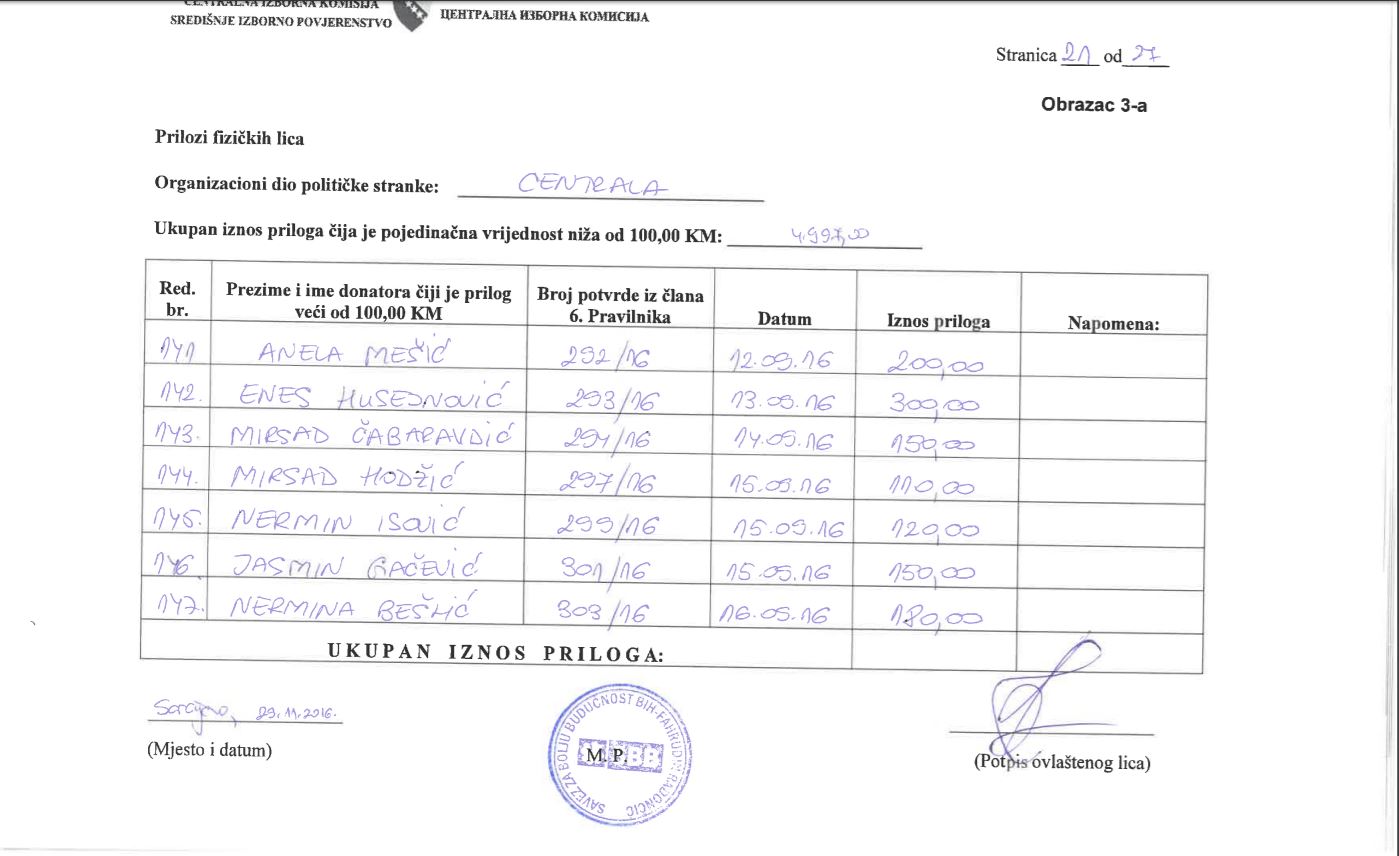 CENTRALNA IZBORNA KOMISIJA
SREDIŠNJE IZBORNO POVJERENSTVO
ЦЕНТРАЛНА ИЗБОРНА КОМИСИЈА
Stranica 21 od 27
Obrazac 3-a
Prilozi fizičkih lica
Organizacioni dio političke stranke: CENTRALA
Ukupan iznos priloga čija je pojedinačna vrijednost niža od 100,00 KM: 4.997,00
Red. br. Prezime i ime donatora čiji je prilog veći od 100,00 KM Broj potvrde iz člana 6. Pravilnika Datum Iznos priloga Napomena:
141 ANELA MEŠIĆ 292/16 12.09.16 200,00
142. ENES HUSEJNOVIĆ 293/16 13.09.16 300,00
143. MIRSAD ČABARAVDIĆ 294/16 14.09.16 150,00
144. MIRSAD HODŽIĆ 297/16 15.09.16 110,00
145. NERMIN ISOVIĆ 299/16 15.09.16 120,00
146. JASMIN GAČEVIĆ 301/16 15.09.16 150,00
147. NERMINA BEŠLIĆ 303/16 16.09.16 180,00
UKUPAN IZNOS PRILOGA:
Sarajevo, 29.11.2016.
(Mjesto i datum)
SAVEZ ZA BOLJU BUDUĆNOST BIH-FAHRUDIN RADONČIĆ
M. P.
(Potpis ovlaštenog lica)